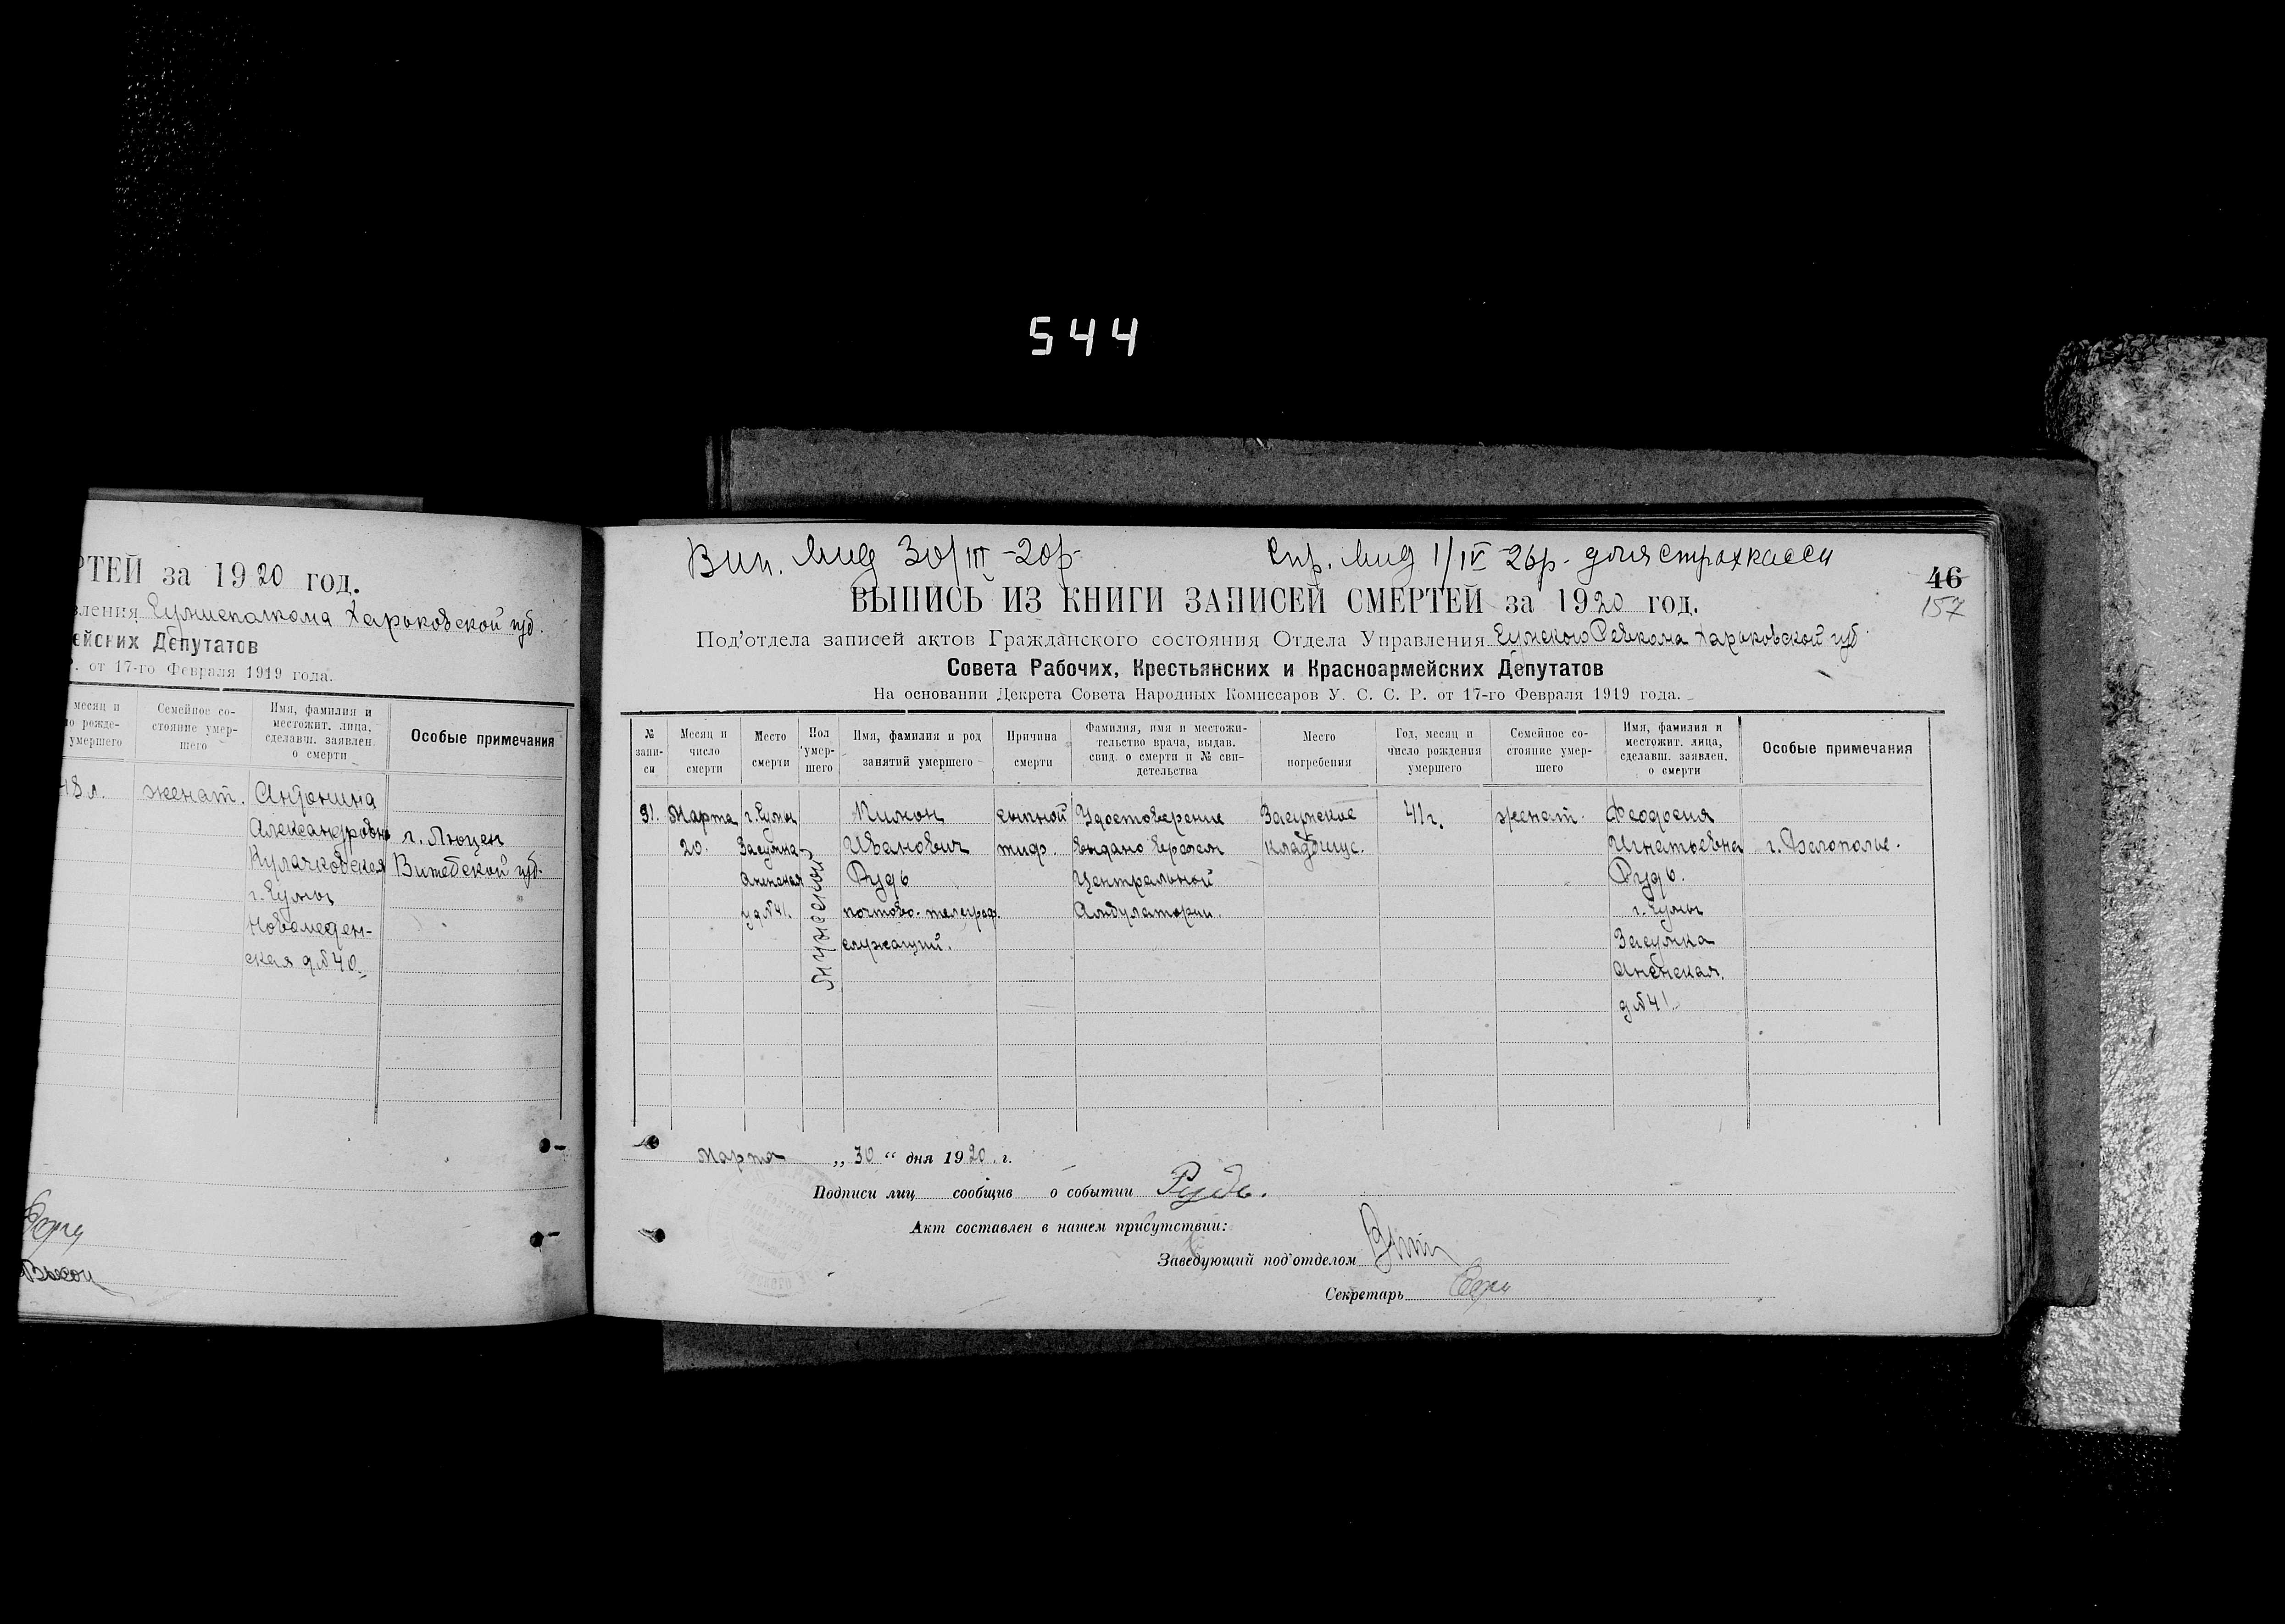 544
РТЕЙ за 1920 год.
вления Сумисполкома Харьковской губ.
ейских Депутатов
Р. от 17-го Февраля 1919 года.
месяц и
ло рожде-
умершего
Семейное со-
стояние умер-
шего
Имя, фамилия и
местожит. лица,
сделавш. заявлен.
о смерти
Особые примечания
48 л.
женат.
Антонина
Александровна
Кулачковская
г. Сумы
Новоместен-
ская д. № 40.
г. Люцен
Витебской губ.
Вип. Мид 30/III-20р
Спр. Мид 1/IV-26р. для страхкасси
46
157
ВЫПИСЬ ИЗ КНИГИ ЗАПИСЕЙ СМЕРТЕЙ за 1920 год.
Под'отдела записей актов Гражданского состояния Отдела Управления Сумского Ревкома Харьковской губ
Совета Рабочих, Крестьянских и Красноармейских Депутатов
На основании Декрета Совета Народных Комиссаров У. С. С. Р. от 17-го Февраля 1919 года.
№
запи-
си
Месяц и
число
смерти
Место
смерти
Пол
умер-
шего
Имя, фамилия и род
занятий умершего
Причина
смерти
Фамилия, имя и местожи-
тельство врача, выдав.
свид. о смерти и № сви-
детельства
Место
погребения
Год, месяц и
число рождения
умершего
Семейное со-
стояние умер-
шего
Имя, фамилия и
местожит. лица,
сделавш. заявлен.
о смерти
Особые примечания
91.
Марта
20.
г. Сумы
Засумка
Аненская
у д № 41.
Мужской
Пимон
Иванович
Рудь
почтово-телеграф.
служащий.
сыпной
тиф.
Удостоверение
выдано врачем
Центральной
Амбулатории.
Засумское
кладбище.
41 г.
женат.
Феодосия
Игнатьевна
Рудь.
г. Сумы
Засумка
Аненская.
д № 41.
г. Белополье.
Марта „ 30 “ дня 1920 г.
Подписи лиц сообщив о событии Рудь.
Акт составлен в нашем присутствии:
Заведующий под'отделом
Секретарь